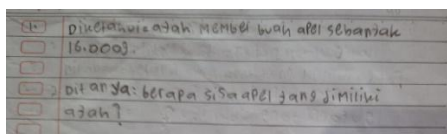 1. Diketahui: ayah membeli buah apel sebanyak
16.000
Ditanya: berapa sisa apel yang dimiliki
ayah?